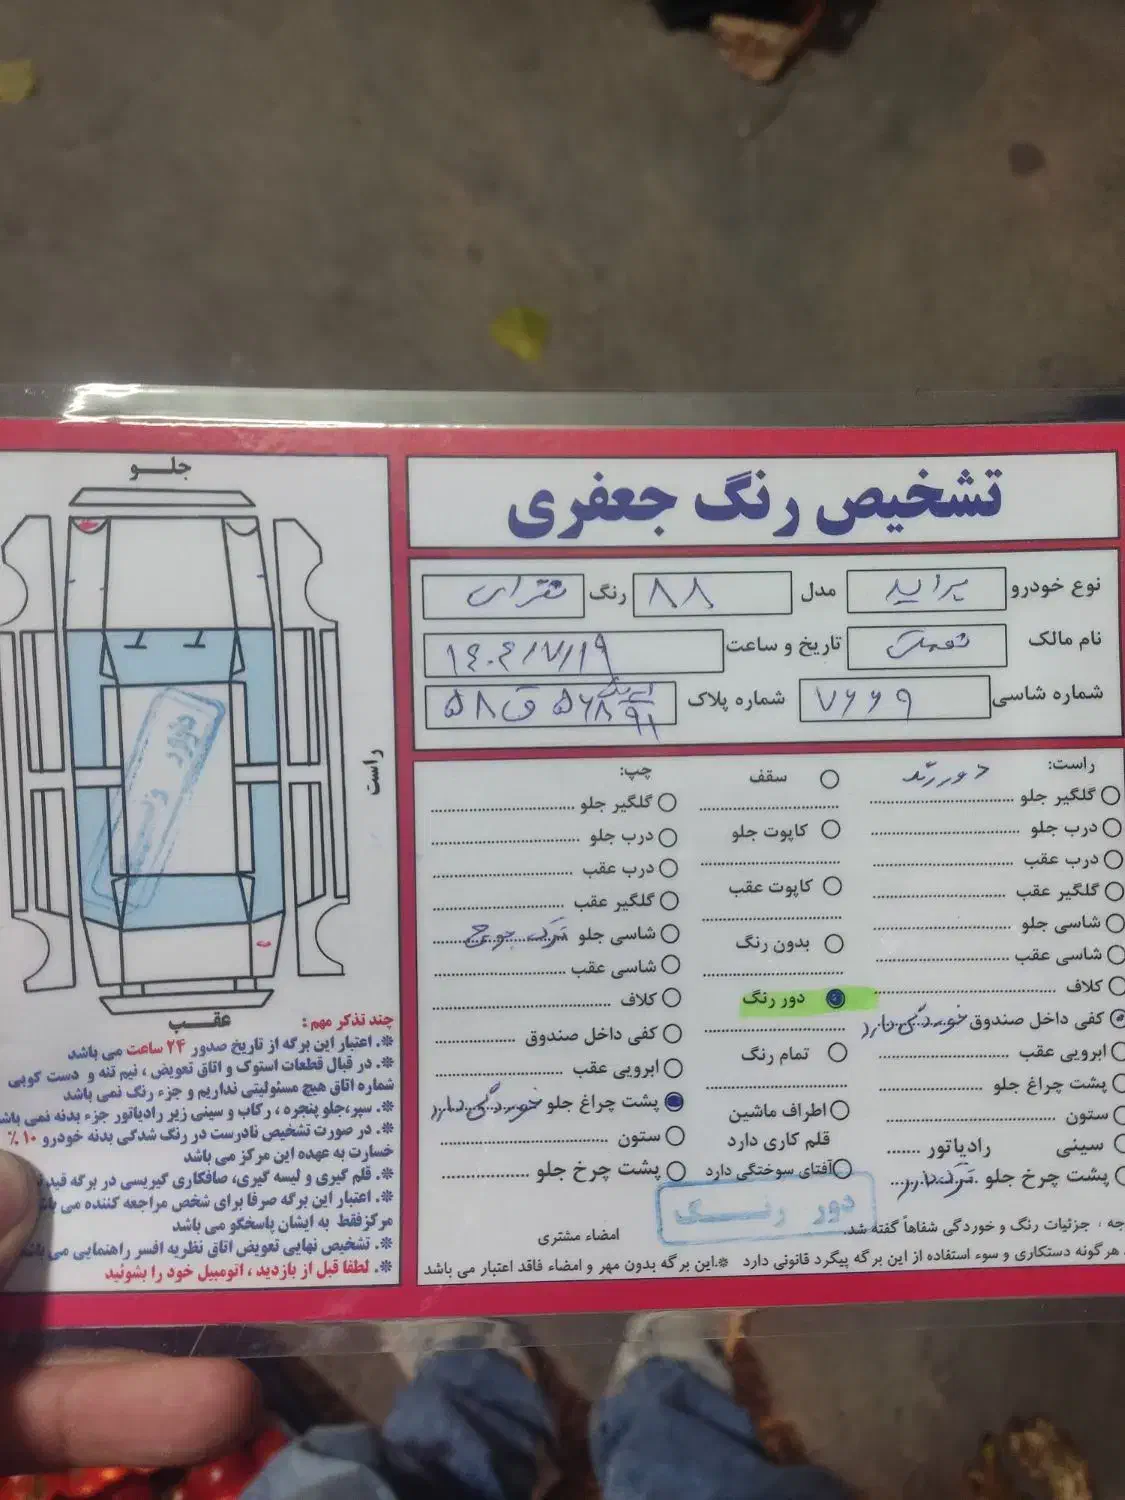 تشخیص رنگ جعفری
نوع خودرو پراید مدل ۸۸ رنگ نقره‌ای
نام مالک تاریخ و ساعت ۱۴۰۴/۷/۱۹
شماره شاسی ۷۶۶۹ شماره پلاک ۵۸ ق ۵۶۸
راست: دور رنگ
گلگیر جلو
درب جلو
درب عقب
گلگیر عقب
شاسی جلو
شاسی عقب
کلاف
کفی داخل صندوق خوردگی دارد
ابرویی عقب
پشت چراغ جلو
ستون
سینی رادیاتور
پشت چرخ جلو
سقف
کاپوت جلو
کاپوت عقب
بدون رنگ
دور رنگ
تمام رنگ
اطراف ماشین
قلم کاری دارد
آفتای سوختگی دارد
چپ:
گلگیر جلو
درب جلو
درب عقب
گلگیر عقب
شاسی جلو ترک جوش
شاسی عقب
کلاف
کفی داخل صندوق
ابرویی عقب
پشت چراغ جلو خوردگی دارد
ستون
پشت چرخ جلو
دور رنگ
جزئیات رنگ و خوردگی شفاهاً گفته شد.
امضاء مشتری
هرگونه دستکاری و سوء استفاده از این برگه پیگرد قانونی دارد ※.این برگه بدون مهر و امضاء فاقد اعتبار می باشد
جلـــو
راست
دور رنگ
عقـــب
چند تذکر مهم :
※. اعتبار این برگه از تاریخ صدور ۲۴ ساعت می باشد
※. در قبال قطعات استوک و اتاق تعویض ، نیم تنه و دست کوپی
شماره اتاق هیچ مسئولیتی نداریم و جزء رنگ نمی باشد
※. سپر،جلو پنجره ، رکاب و سینی زیر رادیاتور جزء بدنه نمی باشد
※. در صورت تشخیص نادرست در رنگ شدگی بدنه خودرو ۱۰٪
خسارت به عهده این مرکز می باشد
※. قلم گیری و لیسه گیری، صافکاری گیریسی در برگه قید
※. اعتبار این برگه صرفا برای شخص مراجعه کننده می
مرکزفقط به ایشان پاسخگو می باشد
※. تشخیص نهایی تعویض اتاق نظریه افسر راهنمایی می باشد
※. لطفا قبل از بازدید ، اتومبیل خود را بشوئید